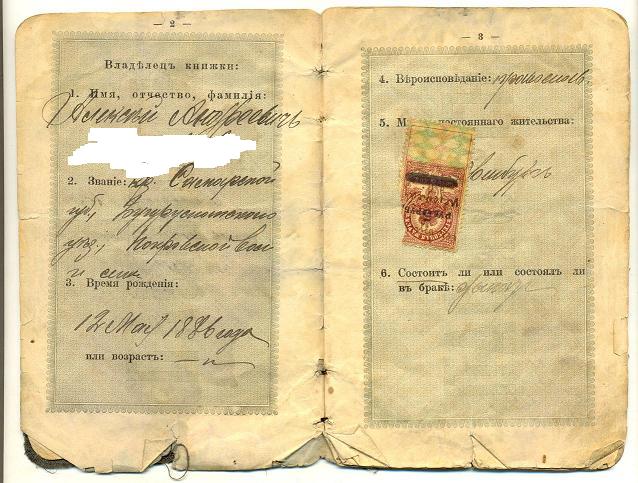 — 2 —
Владѣлецъ книжки:
1. Имя, отчество, фамилія:
Алексѣй Андреевичъ
2. Званіе: кр. Самарской
губ., Бугурусланскаго
уѣз., Покровской вол.
и села
3. Время рожденія:
12 Мая 1886 года
или возрастъ:
— 3 —
4. Вѣроисповѣданіе: православн.
5. М постояннаго жительства:
6. Состоитъ ли или состоялъ ли
въ бракѣ: